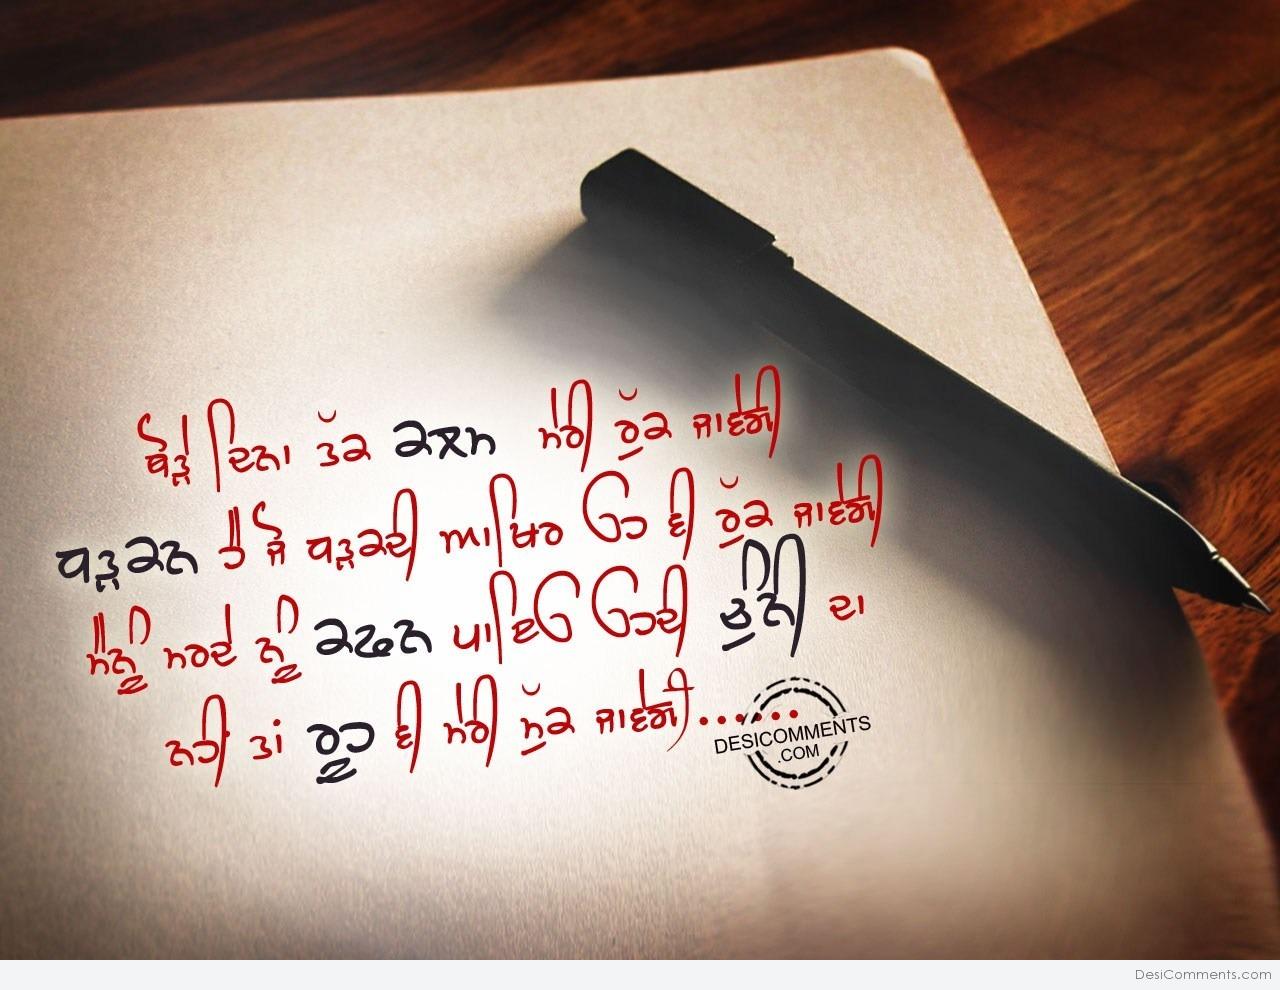 ਥੋੜ੍ਹੇ ਦਿਨਾ ਤੱਕ ਕਲਮ ਮੇਰੀ ਰੁੱਕ ਜਾਵੇਗੀ
ਧੜਕਨ ਹੈ ਜੋ ਧੜਕਦੀ ਆਖਿਰ ਓਹ ਵੀ ਰੁੱਕ ਜਾਵੇਗੀ
ਮੈਨੂੰ ਮਰਦੇ ਨੂੰ ਕਫਨ ਪਾਇਓ ਓਹਦੀ ਚੁੰਨੀ ਦਾ
ਨਹੀਂ ਤਾਂ ਰੂਹ ਵੀ ਮੇਰੀ ਮੁੱਕ ਜਾਵੇਗੀ......
DESICOMMENTS
.COM
DesiComments.com